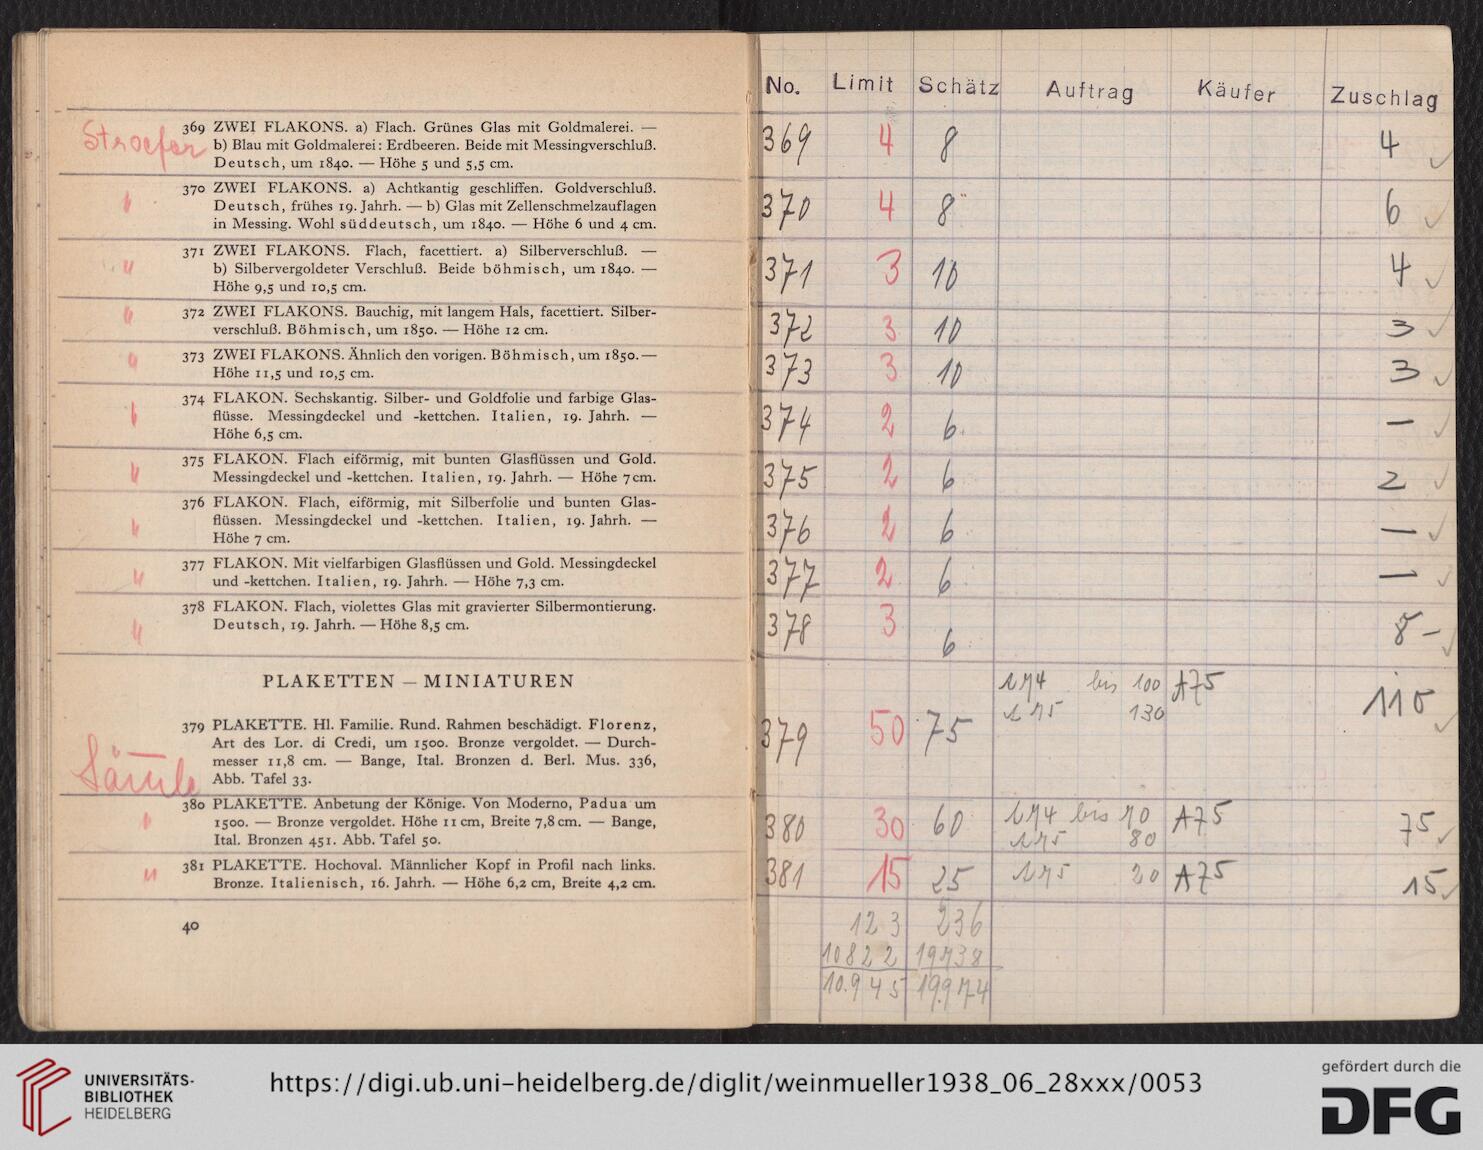 Stroefer
369 ZWEI FLAKONS. a) Flach. Grünes Glas mit Goldmalerei. —
b) Blau mit Goldmalerei: Erdbeeren. Beide mit Messingverschluß.
Deutsch, um 1840. — Höhe 5 und 5,5 cm.
370 ZWEI FLAKONS. a) Achtkantig geschliffen. Goldverschluß.
Deutsch, frühes 19. Jahrh. — b) Glas mit Zellenschmelzauflagen
in Messing. Wohl süddeutsch, um 1840. — Höhe 6 und 4 cm.
371 ZWEI FLAKONS. Flach, facettiert. a) Silberverschluß. —
b) Silbervergoldeter Verschluß. Beide böhmisch, um 1840. —
Höhe 9,5 und 10,5 cm.
372 ZWEI FLAKONS. Bauchig, mit langem Hals, facettiert. Silber-
verschluß. Böhmisch, um 1850. — Höhe 12 cm.
373 ZWEI FLAKONS. Ähnlich den vorigen. Böhmisch, um 1850. —
Höhe 11,5 und 10,5 cm.
374 FLAKON. Sechskantig. Silber- und Goldfolie und farbige Glas-
flüsse. Messingdeckel und -kettchen. Italien, 19. Jahrh. —
Höhe 6,5 cm.
375 FLAKON. Flach eiförmig, mit bunten Glasflüssen und Gold.
Messingdeckel und -kettchen. Italien, 19. Jahrh. — Höhe 7 cm.
376 FLAKON. Flach, eiförmig, mit Silberfolie und bunten Glas-
flüssen. Messingdeckel und -kettchen. Italien, 19. Jahrh. —
Höhe 7 cm.
377 FLAKON. Mit vielfarbigen Glasflüssen und Gold. Messingdeckel
und -kettchen. Italien, 19. Jahrh. — Höhe 7,3 cm.
378 FLAKON. Flach, violettes Glas mit gravierter Silbermontierung.
Deutsch, 19. Jahrh. — Höhe 8,5 cm.
PLAKETTEN — MINIATUREN
379 PLAKETTE. Hl. Familie. Rund. Rahmen beschädigt. Florenz,
Art des Lor. di Credi, um 1500. Bronze vergoldet. — Durch-
messer 11,8 cm. — Bange, Ital. Bronzen d. Berl. Mus. 336,
Abb. Tafel 33.
380 PLAKETTE. Anbetung der Könige. Von Moderno, Padua um
1500. — Bronze vergoldet. Höhe 11 cm, Breite 7,8 cm. — Bange,
Ital. Bronzen 451. Abb. Tafel 50.
381 PLAKETTE. Hochoval. Männlicher Kopf in Profil nach links.
Bronze. Italienisch, 16. Jahrh. — Höhe 6,2 cm, Breite 4,2 cm.
40
No. Limit Schätz Auftrag Käufer Zuschlag
369 4 8 4
370 4 8 6
371 3 10 4
372 3 10 3
373 3 10 3
374 2 6 —
375 2 6 2
376 2 6 —
377 2 6 —
378 3 6 8 —
bis 100 A75
130
379 50 75 110
380 30 60 bis 70 A75 75
80
381 15 25 20 A75 15
123 236
10822 19738
10.945 19974
UNIVERSITÄTS-
BIBLIOTHEK
HEIDELBERG
https://digi.ub.uni-heidelberg.de/diglit/weinmueller1938_06_28xxx/0053
gefördert durch die
DFG